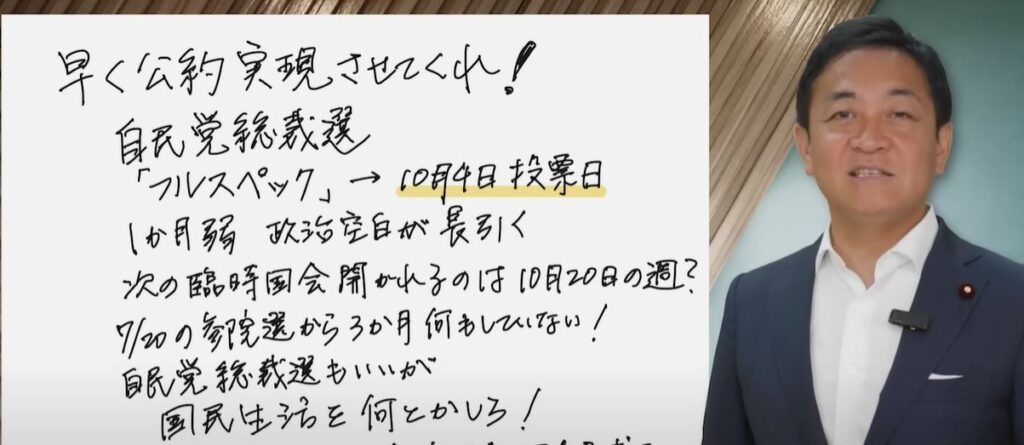 早く公約実現させてくれ!
自民党総裁選
「フルスペック」→ 10月4日 投票日
1か月弱 政治空白が長引く
次の臨時国会開かれるのは10月20日の週?
7/20の参院選から3か月何もしていない!
自民党総裁選もいいが
国民生活を何とかしろ!